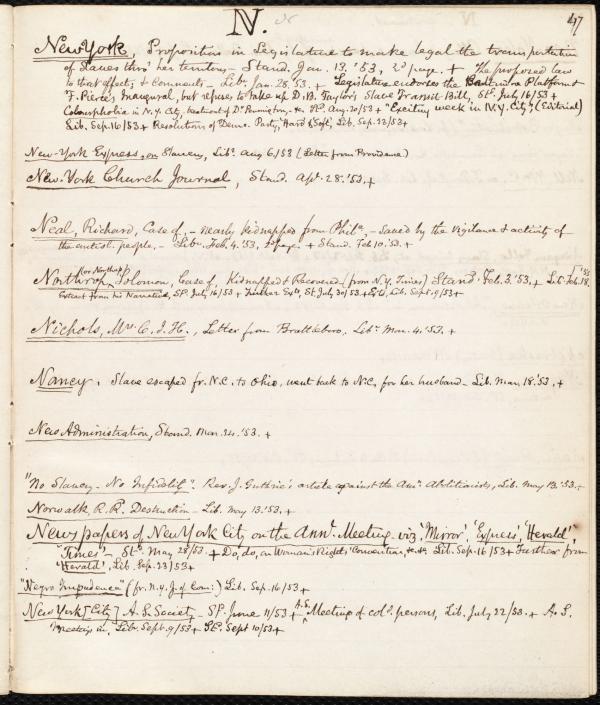 N.
47
New York, Proposition in Legislature to make legal the transportation
of slaves thro' her territory – Stand. Jan. 13. '53, 2d page. + The proposed law
to that effect, & Comments – Libr. Jan. 28, '53. + Legislature endorses the Baltimore Platform &
F. Pierce's Inaugural, but refuses to take up D. B. Taylor's Slave Transit Bill, Std. July 16/53 +
Colourphobia in N.Y. City, treatment of Dr. Pennington &c. Std. Aug. 20/53 + "Exciting week in N.Y. City" (Editorial)
Lib. Sep. 16/53 + Resolutions of Demo. Party, "Hard & Soft", Lib. Sep. 23/53 +
New-York Express, on Slavery, Libr. Aug 6/53 (Letter from Providence)
New-York Church Journal, Stand. Apl. 28. '53. +
Neal, Richard, Case of, – nearly kidnapped from Phila, – saved by the vigilance & activity of
the antisl. people, – Libr. Feb. 4. '53, page. + Stand. Feb 10. '53. +
(or Northup)
Northrop, Solomon, Case of, Kidnapped & Recovered (from N.Y. Times) Stand. Feb. 3. '53. + Lib. Feb. 18. '53
Extract from his Narrative, Std. July 16/53 + Further Exts, St. July 30/53 + Lib. Sept. 9/53 +
Nichols, Mrs. C. I. H., Letter from Brattleboro, Libr. Mar. 4. '53. +
Nancy, Slave escaped fr. N.C. to Ohio, went back to N.C. for her husband. Lib. Mar. 18. '53. +
New Administration, Stand. Mar. 24. '53. +
"No Slavery – No Infidelity". Rev. J. Guthrie's article against the Amn. Abolitionists, Lib. May 13. '53. +
Norwalk, R. R. Destruction – Lib. May 13. '53. +
Newspapers of New York City on the Annl. Meeting. viz, 'Mirror', 'Express', 'Herald',
'Times' – Std. May 28/53. + Do, do, on Woman's Rights' Convention, &c. Lib. Sep. 16/53 + Further from
'Herald', Lib. Sep. 23/53 +
"Negro Impudence" (fr. N.Y. J. of Com:) Lib. Sep. 16/53 +
New York [City] A. S. Society – Std. June 11/53 + A.S. Meeting of cold. persons, Lib. July 22/53. + A. S.
Meetings in, Libr. Sept. 9/53 + Std. Sept 10/53 +